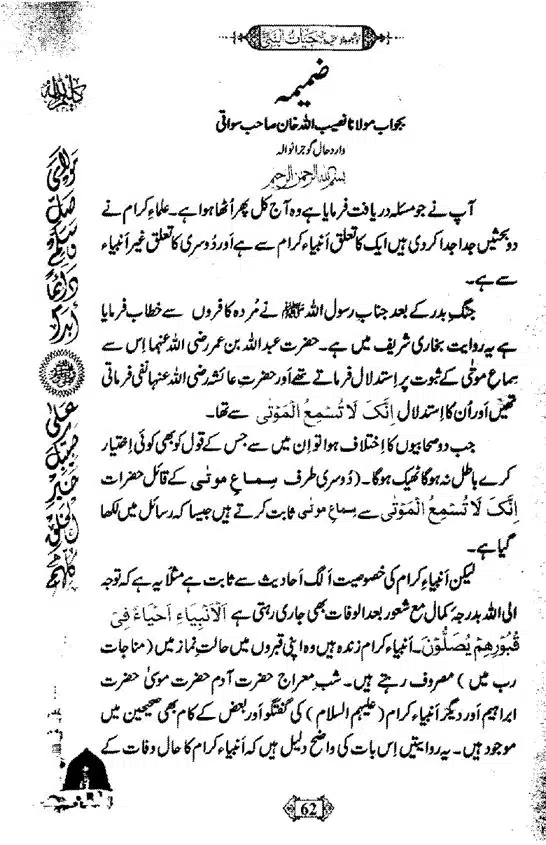 حیات النبی
ضمیمہ
بجواب مولانا نصیب اللہ خان صاحب سواتی
وارد حال گوجرانوالہ
بسم اللہ الرحمن الرحیم
آپ نے جو مسئلہ دریافت فرمایا ہے وہ آج کل پھر اُٹھا ہوا ہے۔ علماء کرام نے
دو بحثیں جدا جدا کر دی ہیں ایک کا تعلق اَنبیاء کرام سے ہے اَور دُوسری کا تعلق غیر اَنبیاء
سے ہے۔
جنگِ بدر کے بعد جناب رسول اللہ ﷺ نے مُردہ کافروں سے خطاب فرمایا
ہے یہ روایت بخاری شریف میں ہے۔ حضرت عبداللہ بن عمر رضی اللہ عنہما اِس سے
سماعِ موتٰی کے ثبوت پر اِستدلال فرماتے تھے اَور حضرتِ عائشہ رضی اللہ عنہا نفی فرماتی
تھیں اَور اُن کا اِستدلال اِنَّکَ لَا تُسْمِعُ الْمَوْتٰی سے تھا۔
جب دو صحابیوں کا اِختلاف ہوا تو اِن میں سے جس کے قول کو بھی کوئی اِختیار
کرے باطل نہ ہو گا ٹھیک ہوگا۔ (دُوسری طرف سماع موتٰی کے قائل حضرات
اِنَّکَ لَا تُسْمِعُ الْمَوْتٰی سے سماع موتٰی ثابت کرتے ہیں جیسا کہ رسائل میں لکھا
گیا ہے۔
لیکن اَنبیاءِ کرام کی خصوصیت اَلگ اَحادیث سے ثابت ہے مثلاً یہ ہے کہ توجہ
الی اللہ بدرجہ کمال مع شعور بعد الوفات بھی جاری رہتی ہے اَلْاَنْبِیَاءُ اَحْیَاءٌ فِیْ
قُبُوْرِھِمْ یُصَلُّوْنَ۔ اَنبیاءِ کرام زندہ ہیں وہ اپنی قبروں میں حالتِ نماز میں (مناجات
رب میں) مصروف رہتے ہیں۔ شبِ معراج حضرت آدم حضرت موسیٰ حضرت
ابراہیم اَور دیگر اَنبیاء کرام (علیہم السلام) کی گفتگو اَور بعض کے کام بھی صحیحین میں
موجود ہیں۔ یہ روایتیں اِس بات کی واضح دلیل ہیں کہ اَنبیاءِ کرام کا حال وفات کے
62
مولای صل وسلم دائما أبدا
علی حبیبک خیر الخلق کلہم